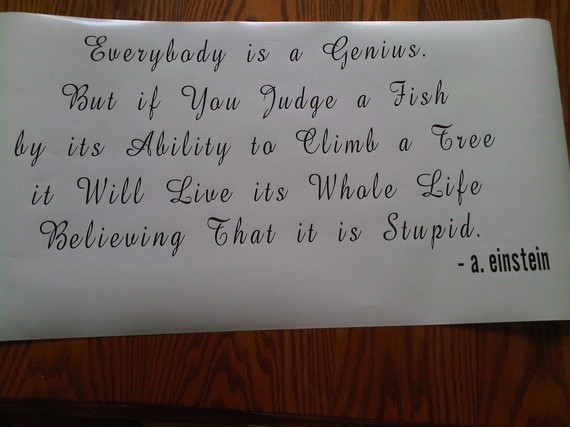 Everybody is a Genius.
But if You Judge a Fish
by its Ability to Climb a Tree
it Will Live its Whole Life
Believing That it is Stupid.
- a. einstein